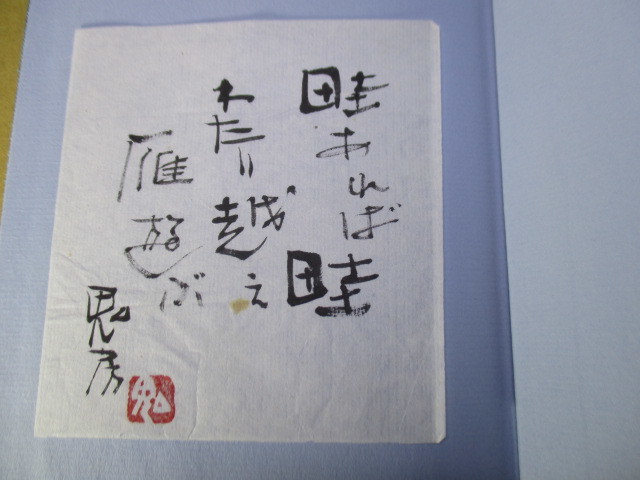 畦あれば畦
わたり越え
雁遊ぶ
鬼房
鬼